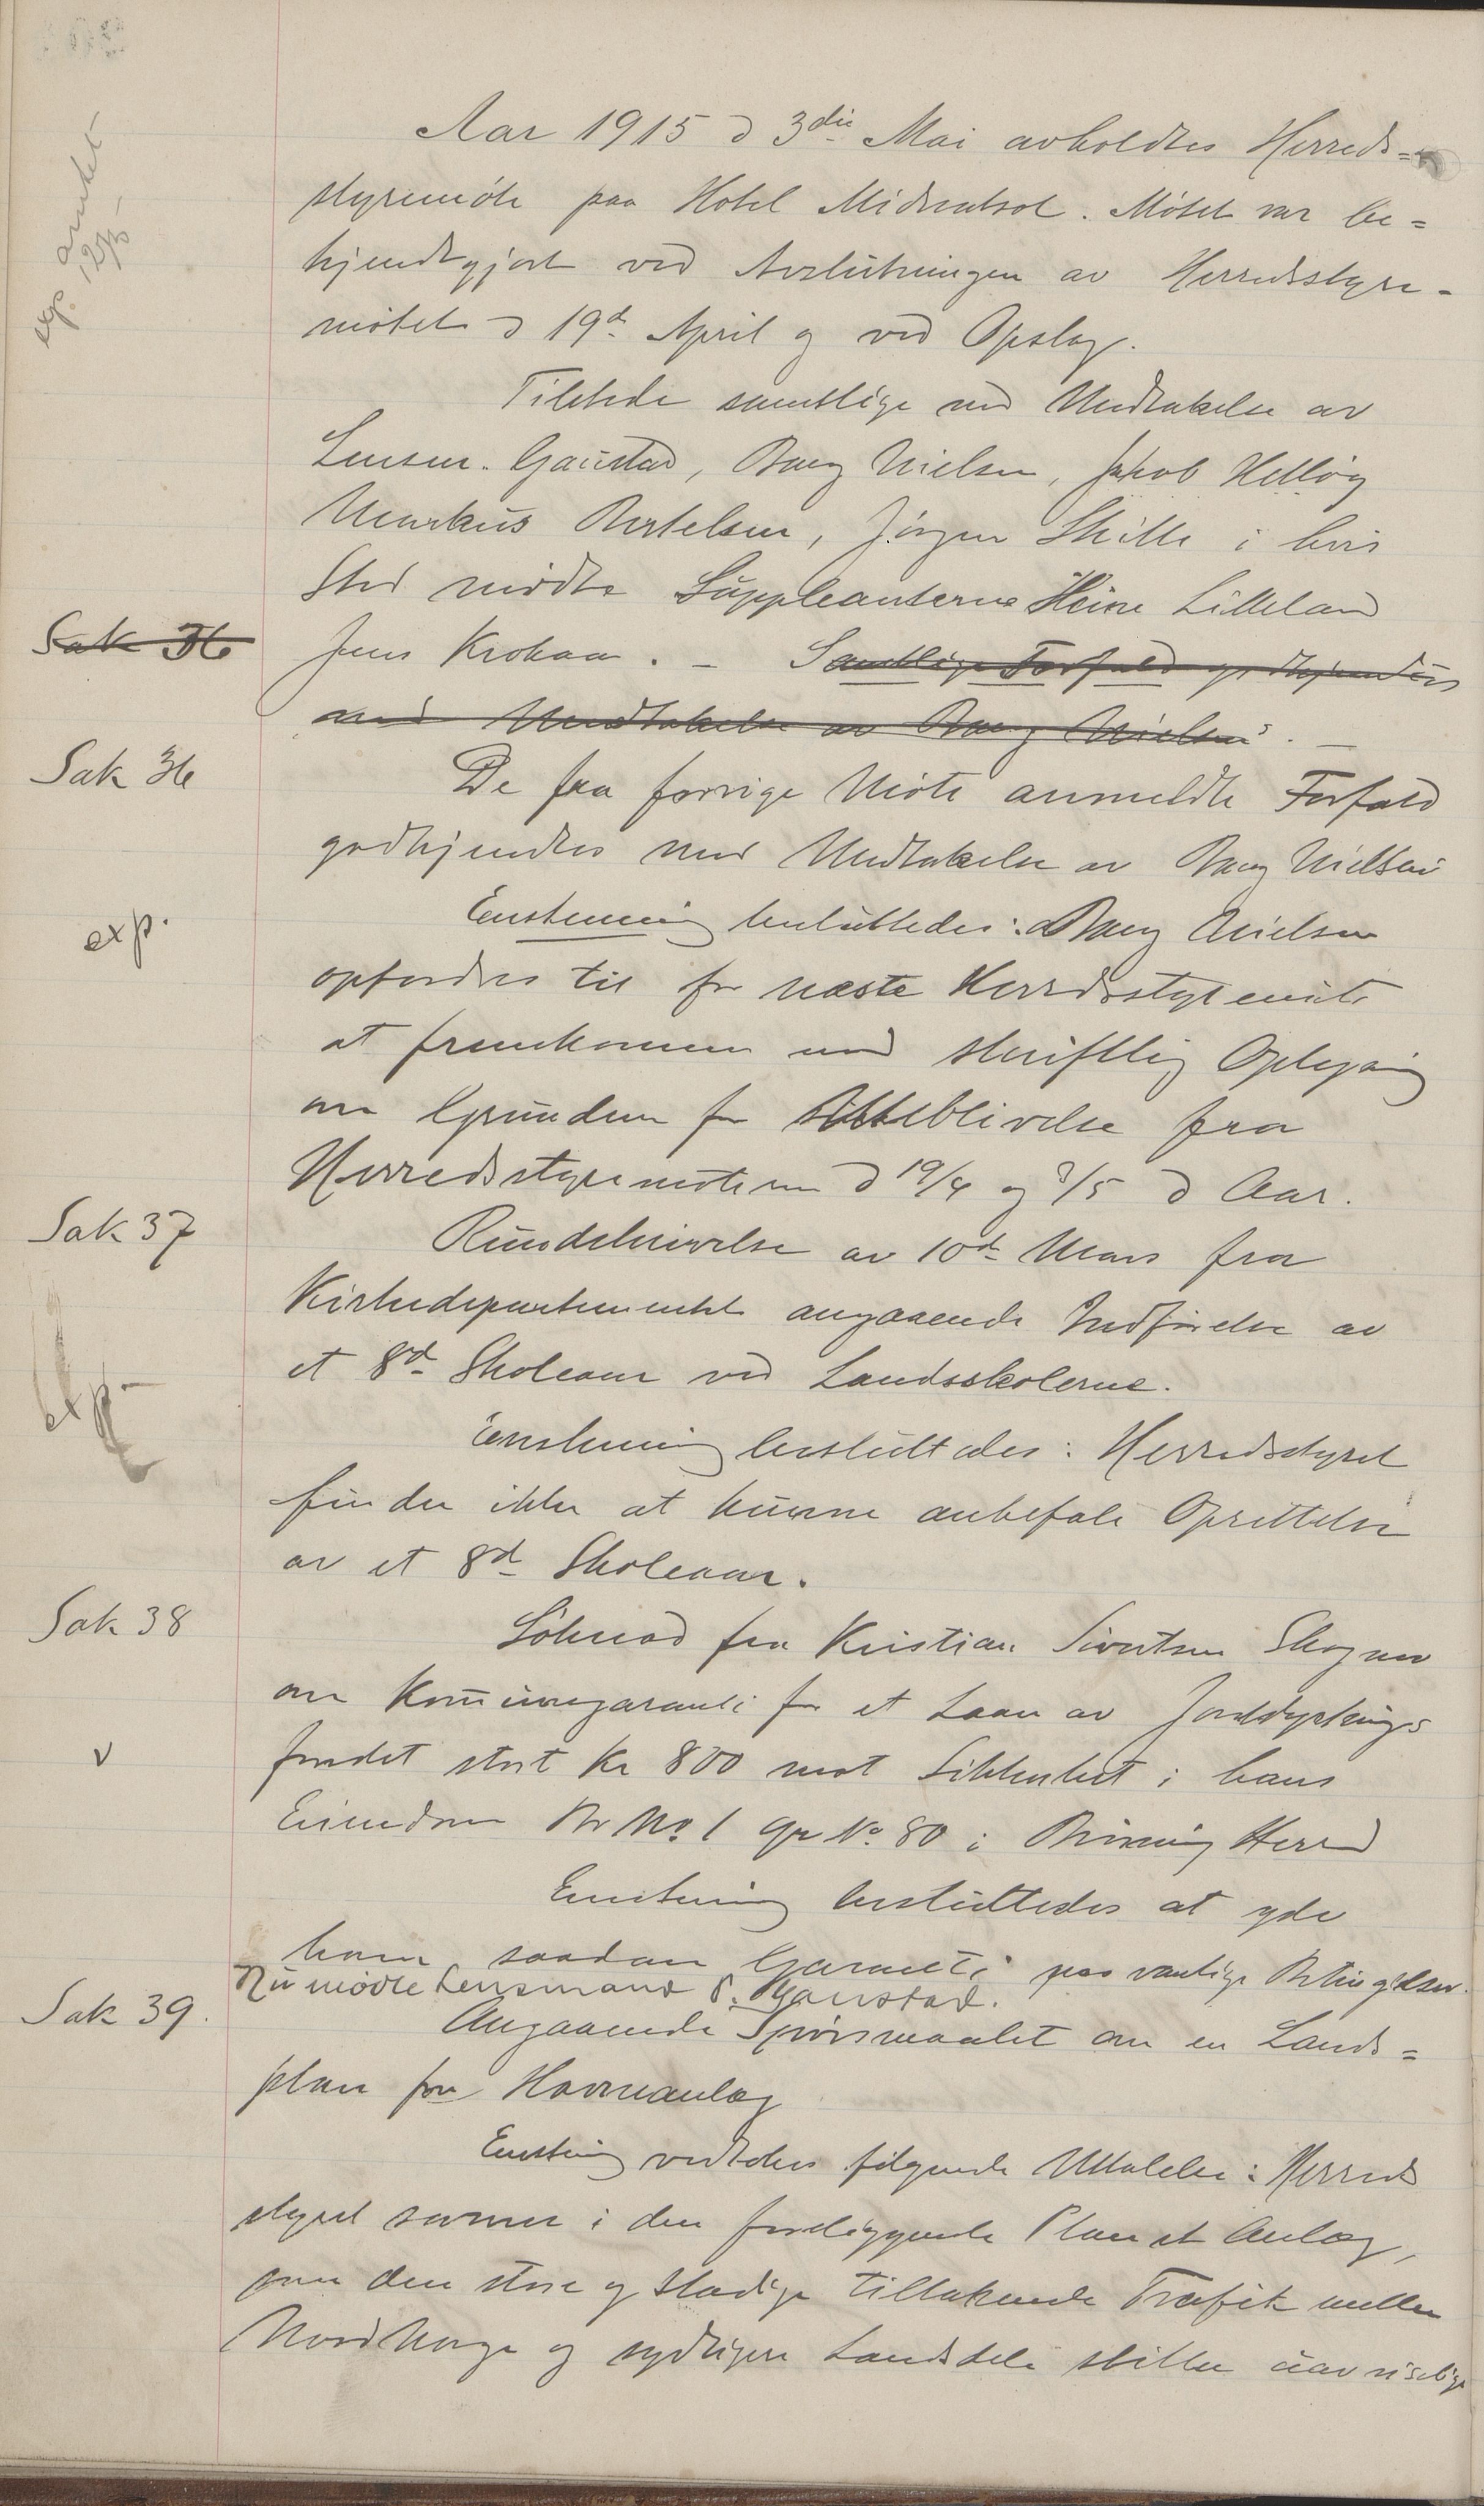 Aar 1915 d 3die Mai avholdtes Herreds=
styremøte paa Hotel Midnatsol. Møtet var be=
kjendtgjort ved Avslutningen av Herredsstyre-
møtet d 19de April og ved Opslag.
Tilstede samtlige med Undtakelse av
Lensm. Gaustad, Bang Nielsen, Jakob Helløy
Markus Bertelsen, Jørgen Skille i hvis
Sted mødte Suppleanterne Heine Lilleland
Sak 36
Jens Krokaa. - Samtlige Forfald godkjendtes
med Undtakelse av Bang Nielsens. -
Sak 36
De fra forrige Møte anmeldte Forfald
godkjendtes med Undtakelse av Bang Nielsens
exp.
Enstemmig besluttedes: Bang Nielsen
opfordres til før næste Herredsstyremøte
at fremkomme med skriftlig Oplysning
om Grunden for Utteblivelse fra
Herredsstyremøterne d 19/4 og 3/5 d Aar.
Sak 37
Rundskrivelse av 10de Mars fra
Kirkedepartementet angaaende Indførelse av
exp
et 8de Skoleaar ved Landsskolerne.
Enstemmig besluttedes: Herredsstyret
finder ikke at kunne anbefale Oprettelse
av et 8de Skoleaar.
Sak 38
Søknad fra Kristian Sivertsen Skogmo
om Kommunegaranti for et Laan av Jorddyrknings
v
fondet stort Kr 800 mot Sikkerhet i hans
Eiendom Br No. 1 gr No. 80 i Brønnøy Herred
Enstemmig besluttedes at yde
ham saadan Garanti paa vanlige Betingelser.
Nu mødte Lensmand P. Gaustad.
Sak 39.
Angaaende Spørsmaalet om en Lands=
plan for Havneanlæg
Enstemmig vedtokes følgende Uttalelse: Herreds
styret savner i den foreliggende Plan et Anlæg,
som den store og stadige tiltakende Trafik mellem
Nord Norge og sydligere Landsdele stiller uavviselige